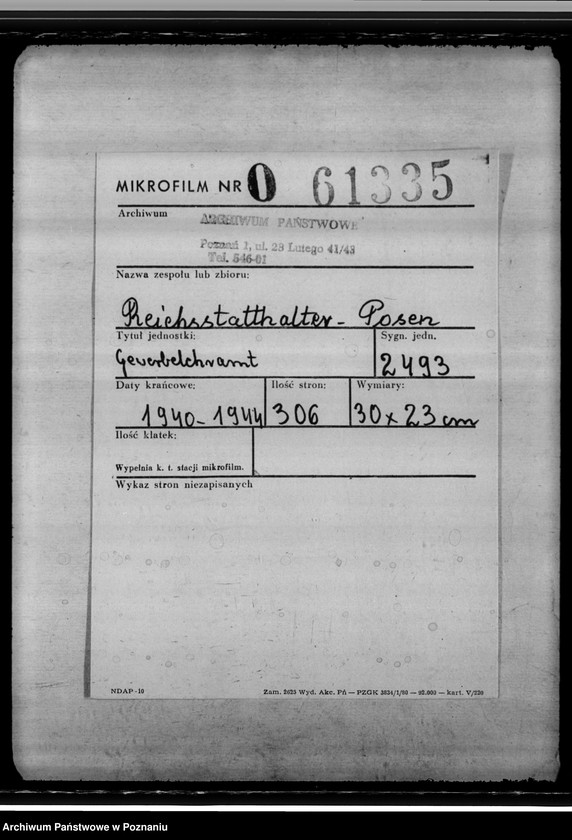 MIKROFILM NR 0 61335
Archiwum
ARCHIWUM PAŃSTWOWE
Poznań 1, ul. 23 Lutego 41/43
Tel. 546-01
Nazwa zespołu lub zbioru:
Reichsstatthalter - Posen
Tytuł jednostki: Sygn. jedn.
Gewerbelehramt 2493
Daty krańcowe: Ilość stron: Wymiary:
1940-1944 306 30 x 23 cm
Ilość klatek:
Wypełnia k. t. stacji mikrofilm.
Wykaz stron niezapisanych
NDAP-10 Zam. 2625 Wyd. Akc. Pń — PZGK 3634/1/80 — 92.000 — kart. V/220
Archiwum Państwowe w Poznaniu